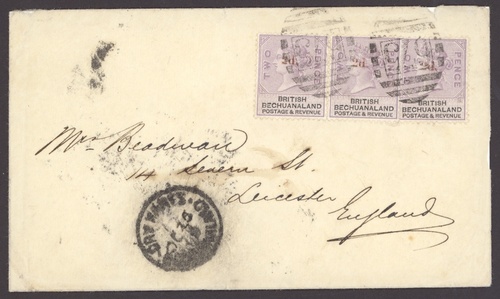 TWO PENCE
2d. 2d. 2d.
BRITISH BECHUANALAND POSTAGE & REVENUE
BRITISH BECHUANALAND POSTAGE & REVENUE
BRITISH BECHUANALAND POSTAGE & REVENUE
Mrs Beadman
14 Severn St.
Leicester
England